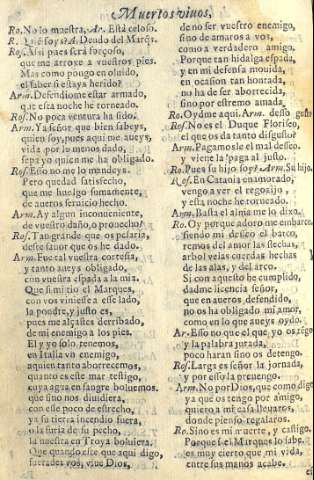 Muertos vivos,
Ro. No lo maestra, Ar. Està celoso.
R. Què soys? A. Deudo del Marqs.
Ros. Assi pues serà forçoso,
que me arroje a vuestros pies.
Mas como pongo en oluido,
el saber si estays herido?
Arm. Defendiome estar armado,
que esta noche he torneado.
Ros. No poca ventura ha sido.
Arm. Ya señor que bien sabeys,
quien soy, pues aqui me aueys,
vida por lo menos dado,
sepa yo quien me ha obligado.
Ros. Esso no me lo mandeys.
Pero quedad satisfecho,
que me huelgo sumamente,
de aueros seruicio hecho.
Arm. Ay algun inconueniente,
de vuestro daño, o prouecho?
Ros. Tan grande que os pesaria,
desse fauor que os he dado.
Arm. Fue tal vuestra cortesia,
y tanto aueys obligado,
con vuestra espada a la mia.
Que si mi tio el Marques,
con vos viniesse a esse lado,
la pondre, y justo es,
pues me alçastes derribado,
de mi enemigo a los pies.
El y yo solo, tenemos,
en Italia vn enemigo,
a quien tanto aborrecemos,
quanto es este mar testigo,
cuya agua en sangre boluemos.
que sino nos diuidiera,
con esse poco de estrecho,
ya su tierra incendio fuera,
o la furia de su pecho,
la nuestra en Troya boluiera.
Que quando este que aqui digo,
fuerades vos, viue Dios,
de no ser vuestro enemigo,
sino de amaros a vos,
como a verdadero amigo.
Porque tan hidalga espada,
y en mi defensa mouida,
en ocasion tan honrada,
no ha de ser aborrecida,
sino por estremo amada,
Ro. Oydme aqui. Arm. desso gusto
Ros. No es el Duque Floriseo,
el que os da tanto disgusto?
Arm. Pagamosle el mal desseo,
y viene la paga al justo.
Ro. Pues su hijo soy: Arm. Su hijo.
Ros. En Catania enamorado,
vengo a ver el regozijo,
y esta noche he torneado.
Arm. Basta el alma me lo dixo.
Ro. Oy porque adoro me embarco
siendo mi desseo el barco,
remos del amor las flechas,
arbol velas cuerdas hechas
de las alas, y del arco.
Si con aquesto he cumplido,
dadme licencia señor,
que en aueros defendido,
no os ha obligado mi amor,
como en lo que aueys oydo.
Ar. Esso no que el que, yo os, rego
y la palabra jurada,
poco haran sino os detengo.
Ros. Larga es señor la jornada,
y por esso la preuengo.
Arm. No por Dios, que como digo
ya que os tengo por amigo,
quiero a mi casa lleuaros,
donde pienso regalaros.
Ro. Sino es mi muerte, y castigo.
Porque si el Marques lo sabe,
es muy cierto que mi vida,
entre sus manos acabe.